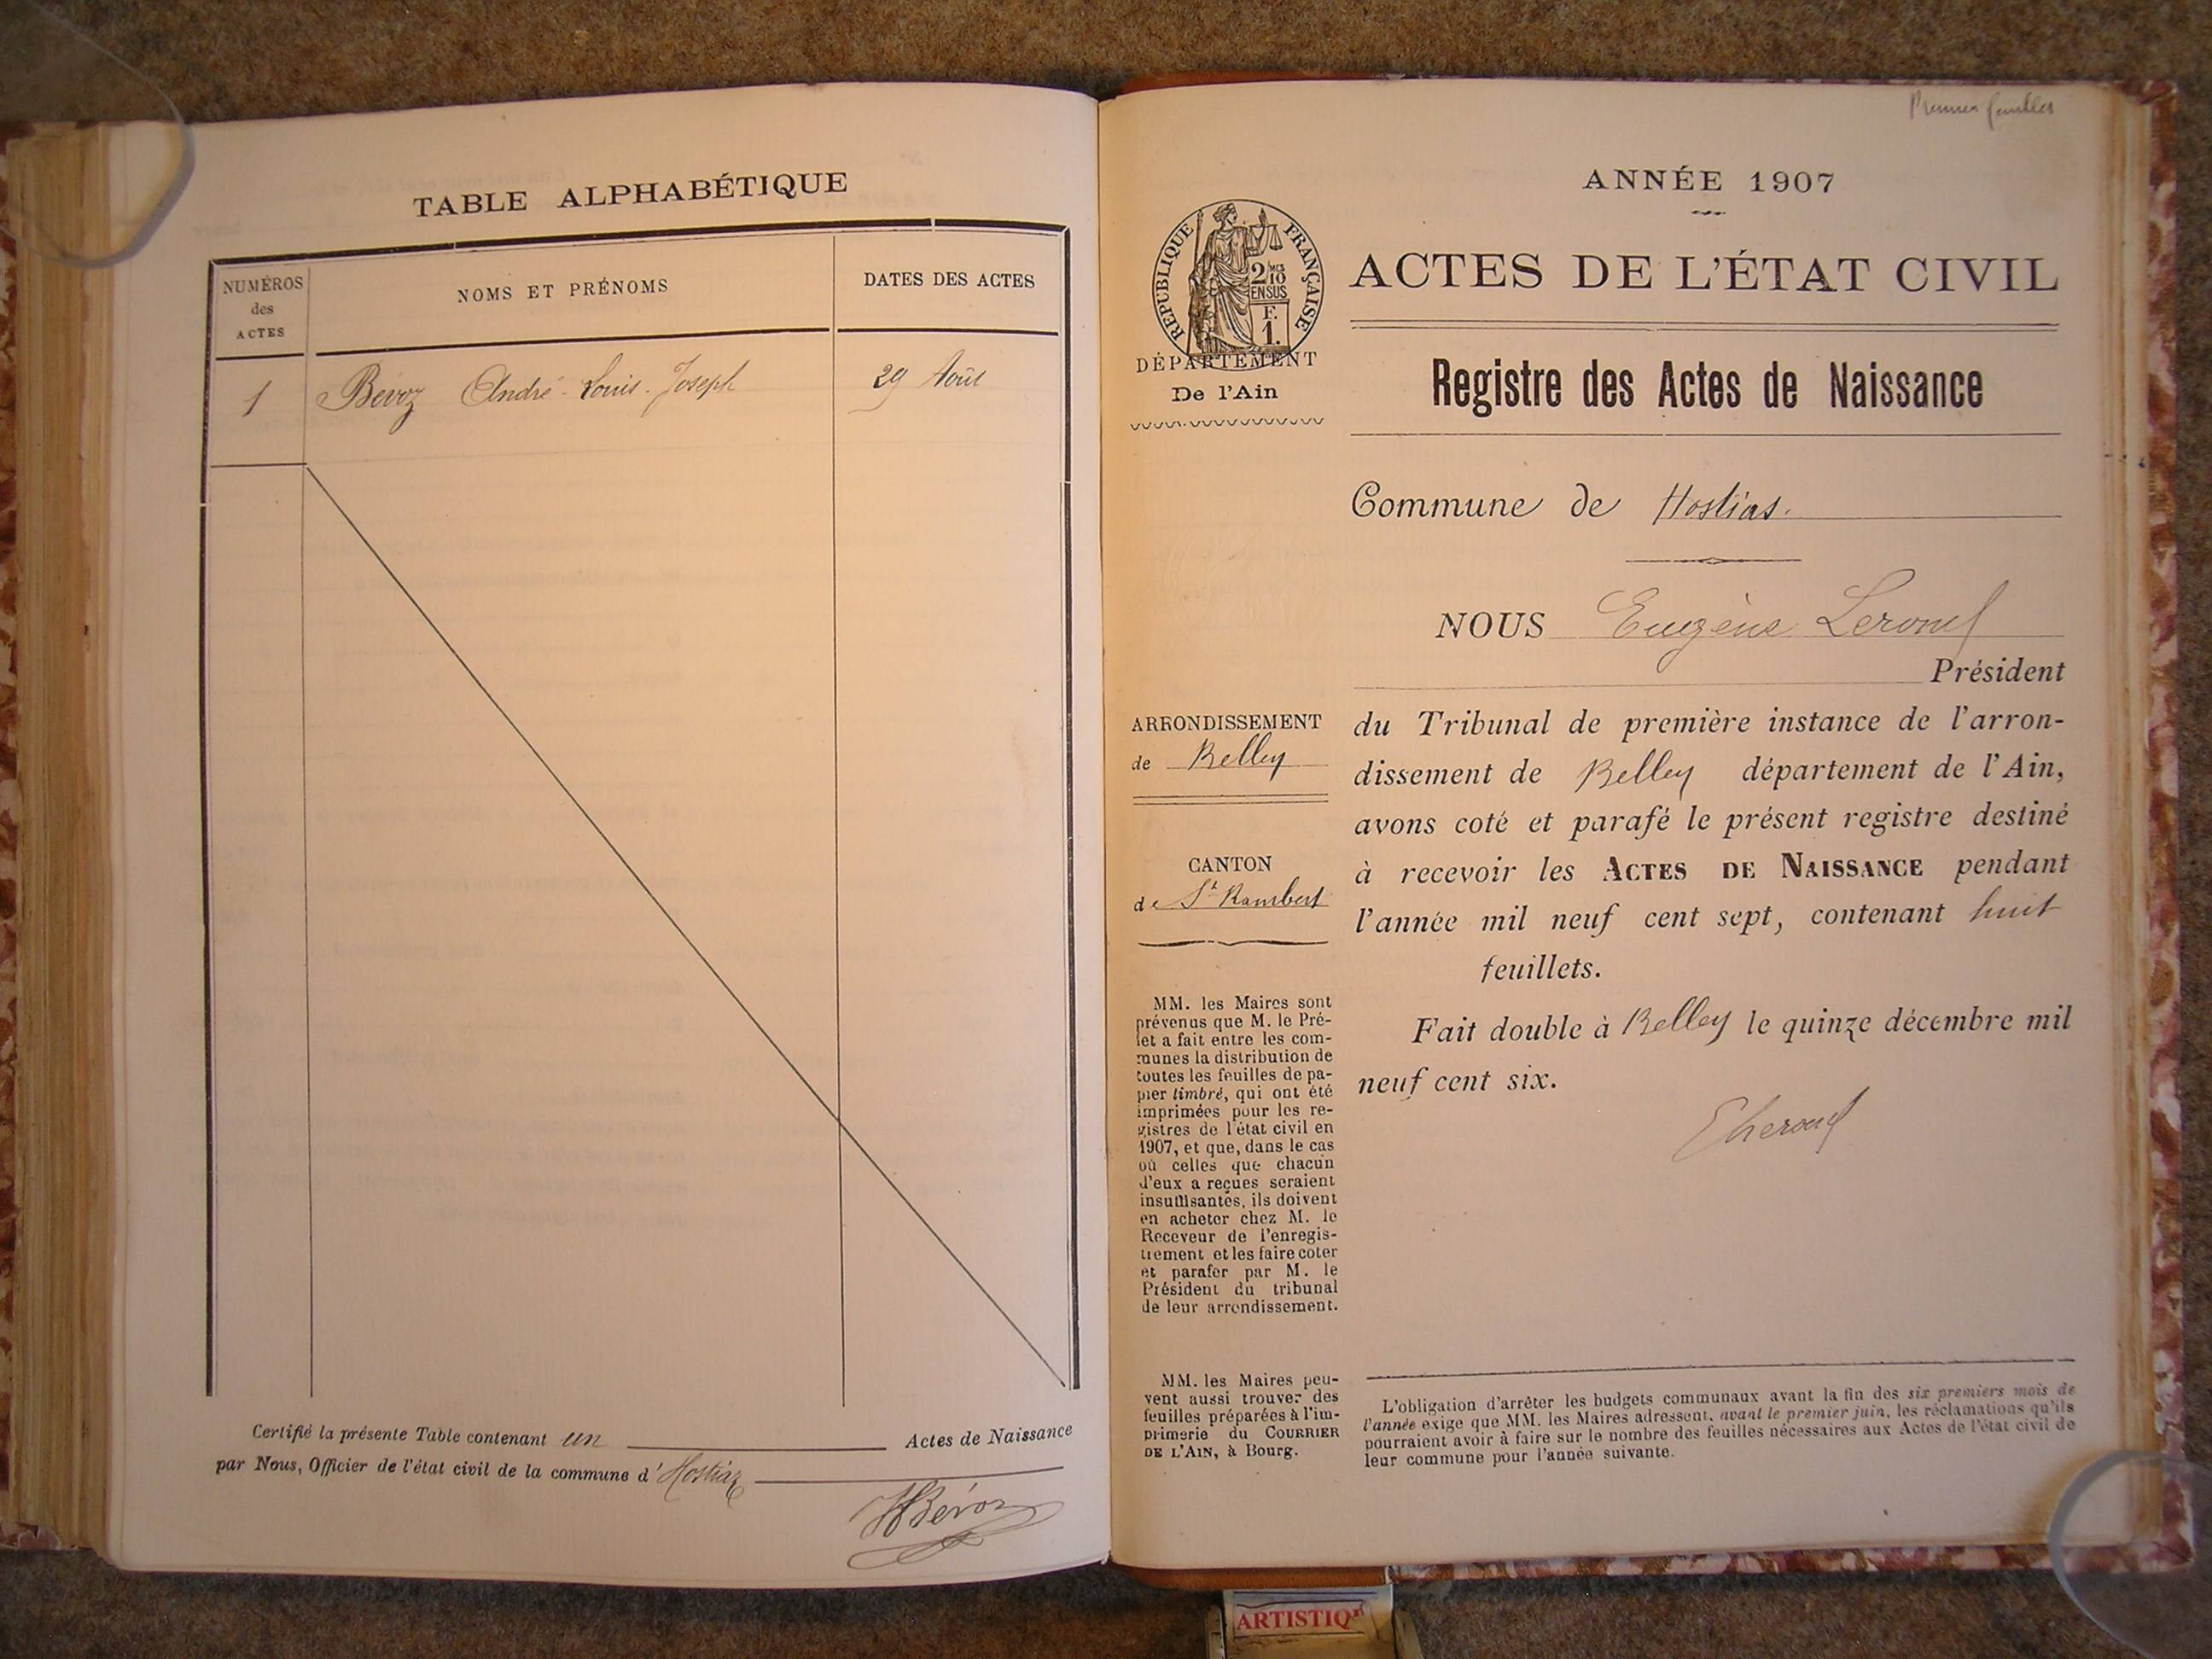 TABLE ALPHABÉTIQUE
NUMÉROS
des
ACTES
NOMS ET PRÉNOMS
DATES DES ACTES
1 Bévoz André-Louis-Joseph 29 Août
Certifié la présente Table contenant un Actes de Naissance
par Nous, Officier de l'état civil de la commune d'Hostiaz
HBévoz
Premier feuillet
ANNÉE 1907
RÉPUBLIQUE FRANÇAISE
2 10
MES
EN SUS
F.
1.
DÉPARTEMENT
De l'Ain
ACTES DE L'ÉTAT CIVIL
Registre des Actes de Naissance
Commune de Hostias.
NOUS Eugène
Président
ARRONDISSEMENT
de Belley
CANTON
de St Rambert
du Tribunal de première instance de l'arron-
dissement de Belley département de l'Ain,
avons coté et parafé le présent registre destiné
à recevoir les ACTES DE NAISSANCE pendant
l'année mil neuf cent sept, contenant huit
feuillets.
Fait double à Belley le quinze décembre mil
neuf cent six.
MM. les Maires sont
prévenus que M. le Pré-
fet a fait entre les com-
munes la distribution de
toutes les feuilles de pa-
pier timbré, qui ont été
imprimées pour les re-
gistres de l'état civil en
1907, et que, dans le cas
où celles que chacun
d'eux a reçues seraient
insuffisantes, ils doivent
en acheter chez M. le
Receveur de l'enregis-
trement et les faire coter
et parafer par M. le
Président du tribunal
de leur arrondissement.
MM. les Maires peu-
vent aussi trouver des
feuilles préparées à l'im-
primerie du COURRIER
DE L'AIN, à Bourg.
L'obligation d'arrêter les budgets communaux avant la fin des six premiers mois de
l'année exige que MM. les Maires adressent, avant le premier juin, les réclamations qu'ils
pourraient avoir à faire sur le nombre des feuilles nécessaires aux Actes de l'état civil de
leur commune pour l'année suivante.
ARTISTIQ